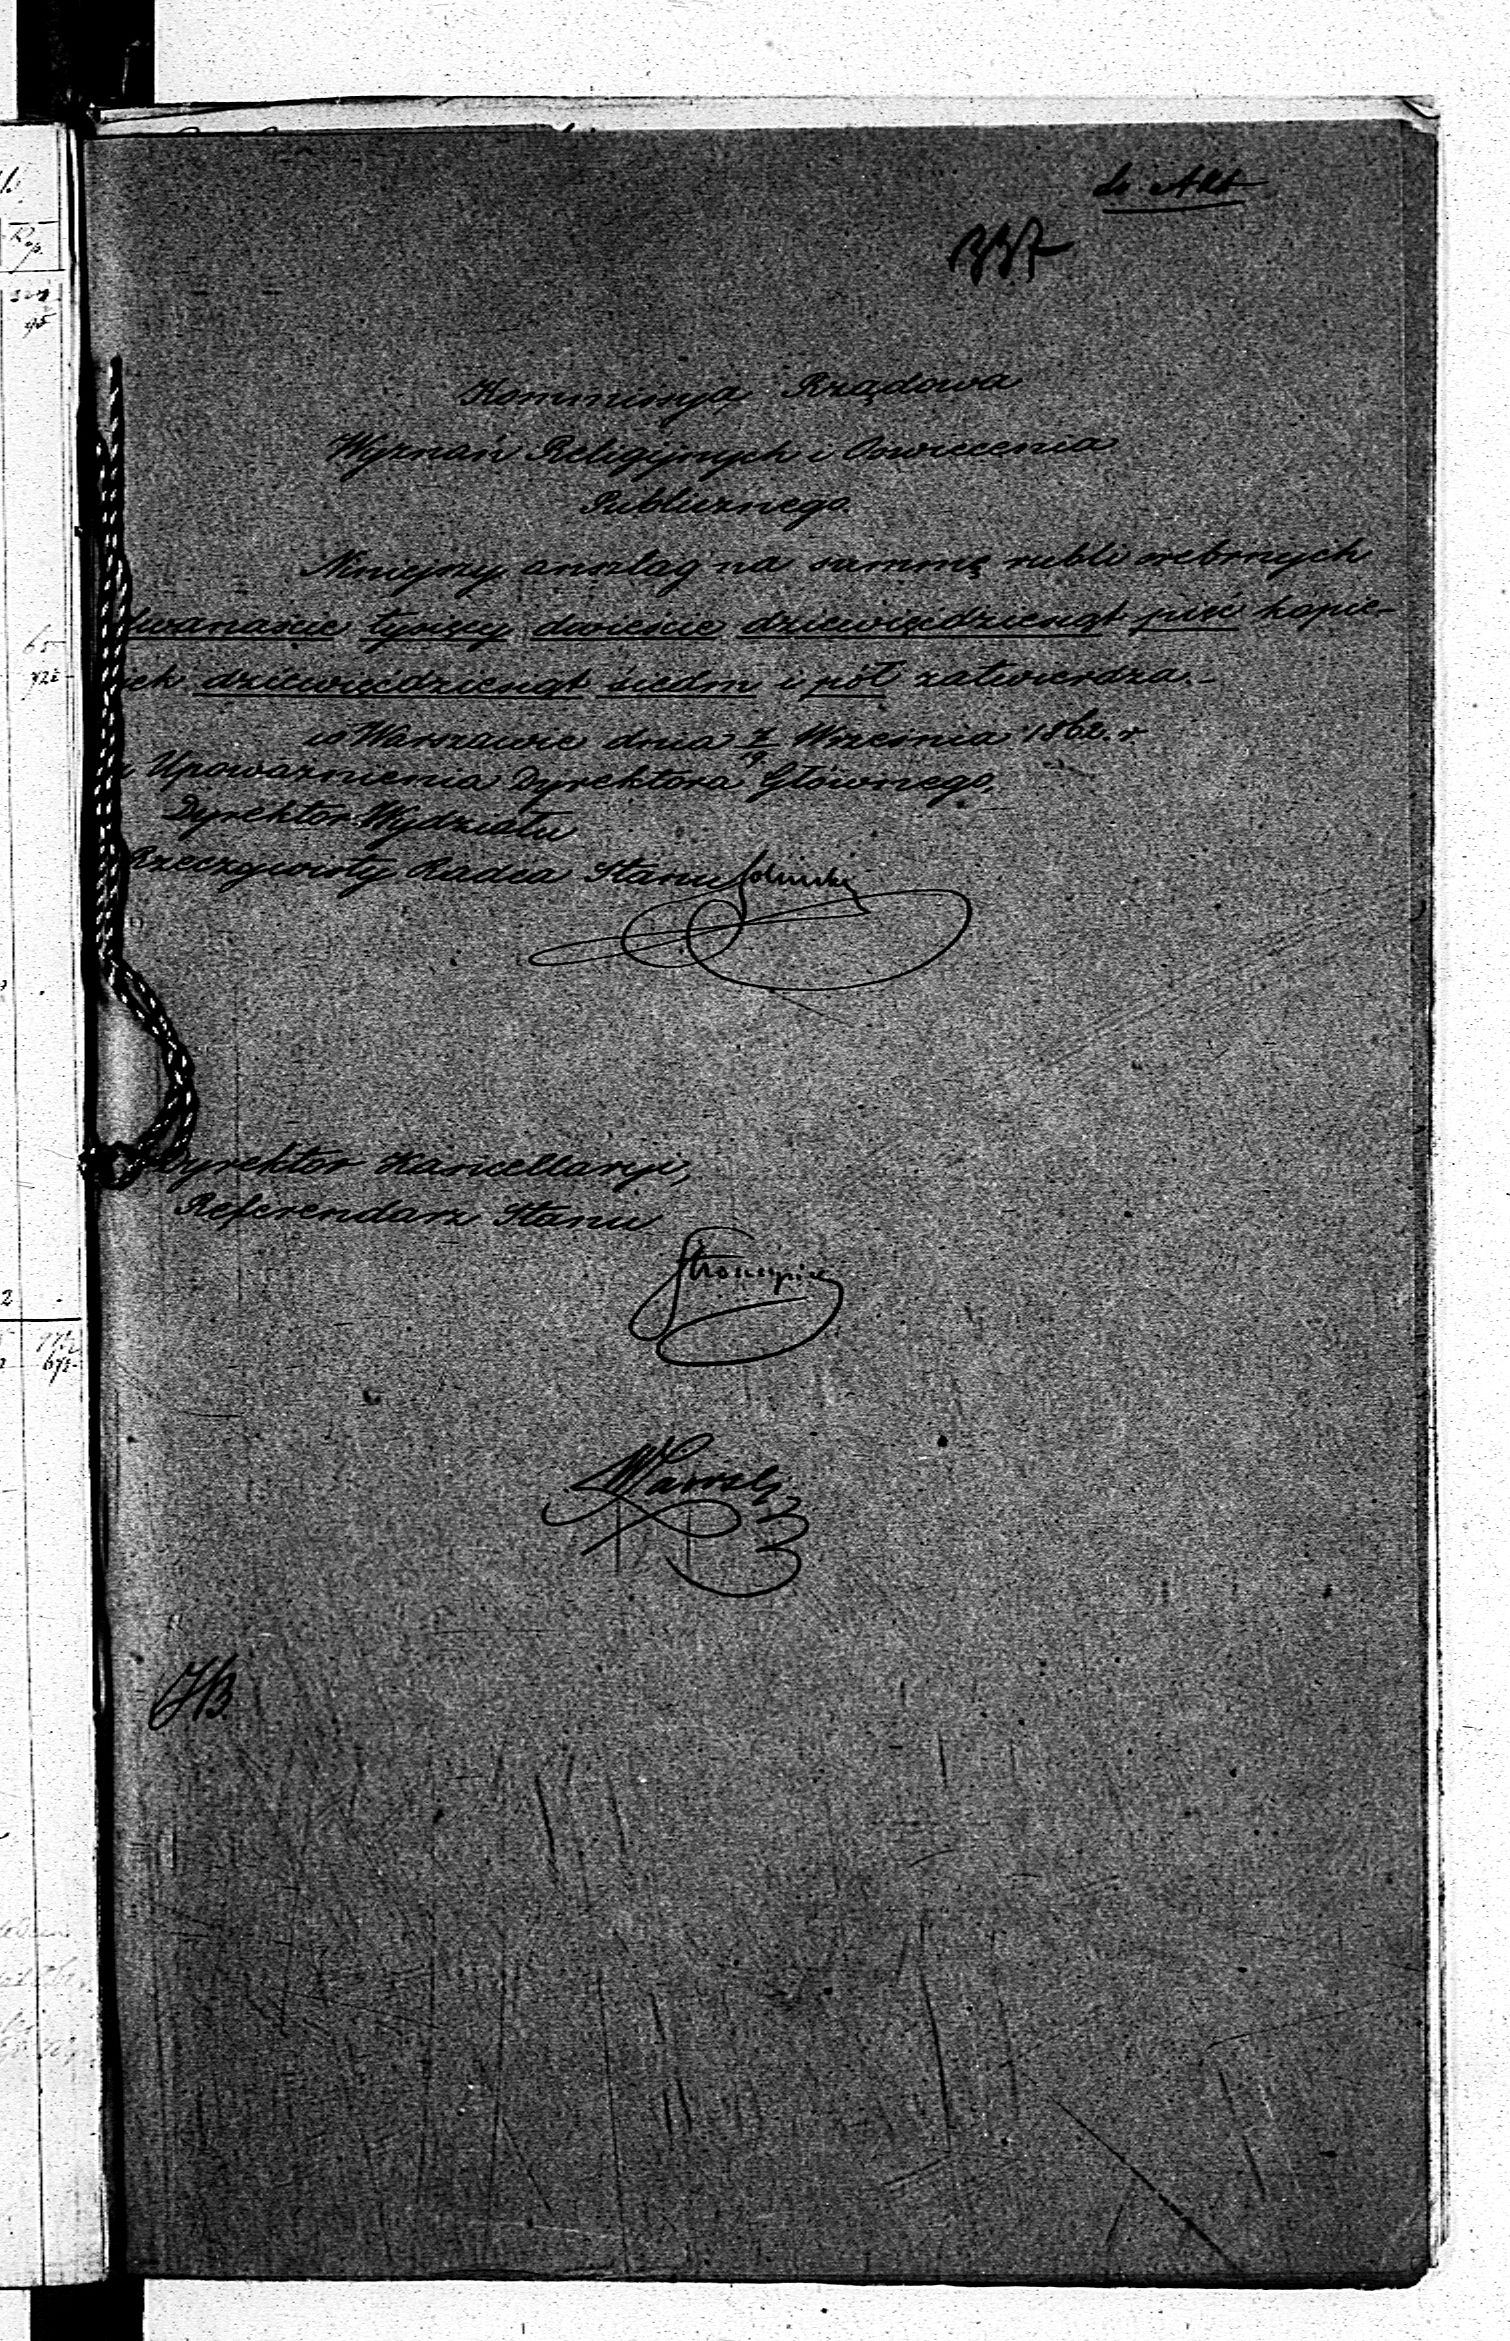 do Akt
Kommissya Rządowa
Wyznań Religijnych i Oswiecenia
Publicznego.
Niniejszy anszlag na summę rubli srebrnych
dwanaście tysięcy dwieście dziewięćdziesiąt pięć kopie-
jek dziewięćdziesiąt siedm i pół zatwierdza.-
w Warszawie dnia Września 1862. r
z Upoważnienia Dyrektora Głównego,
Dyrektor Wydziału
Rzeczywisty Radca Stanu
Dyrektor Kancellaryi,
Referendarz Stanu
JB.